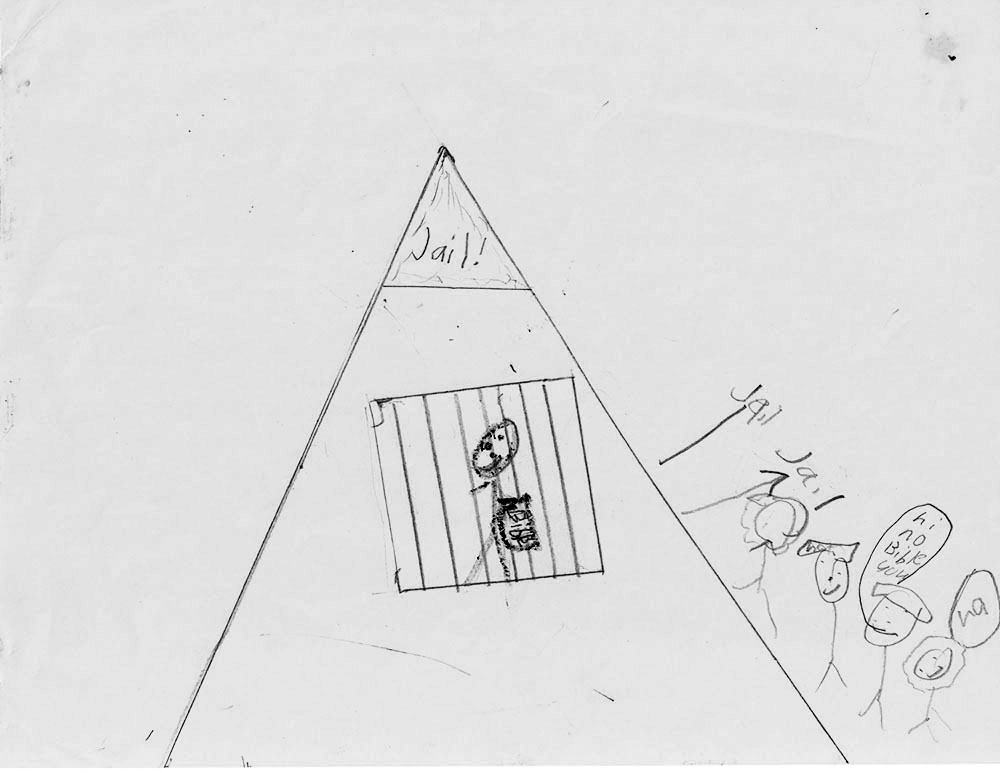 Jail!
Jail
Jail
hi
no
Bible
you
na